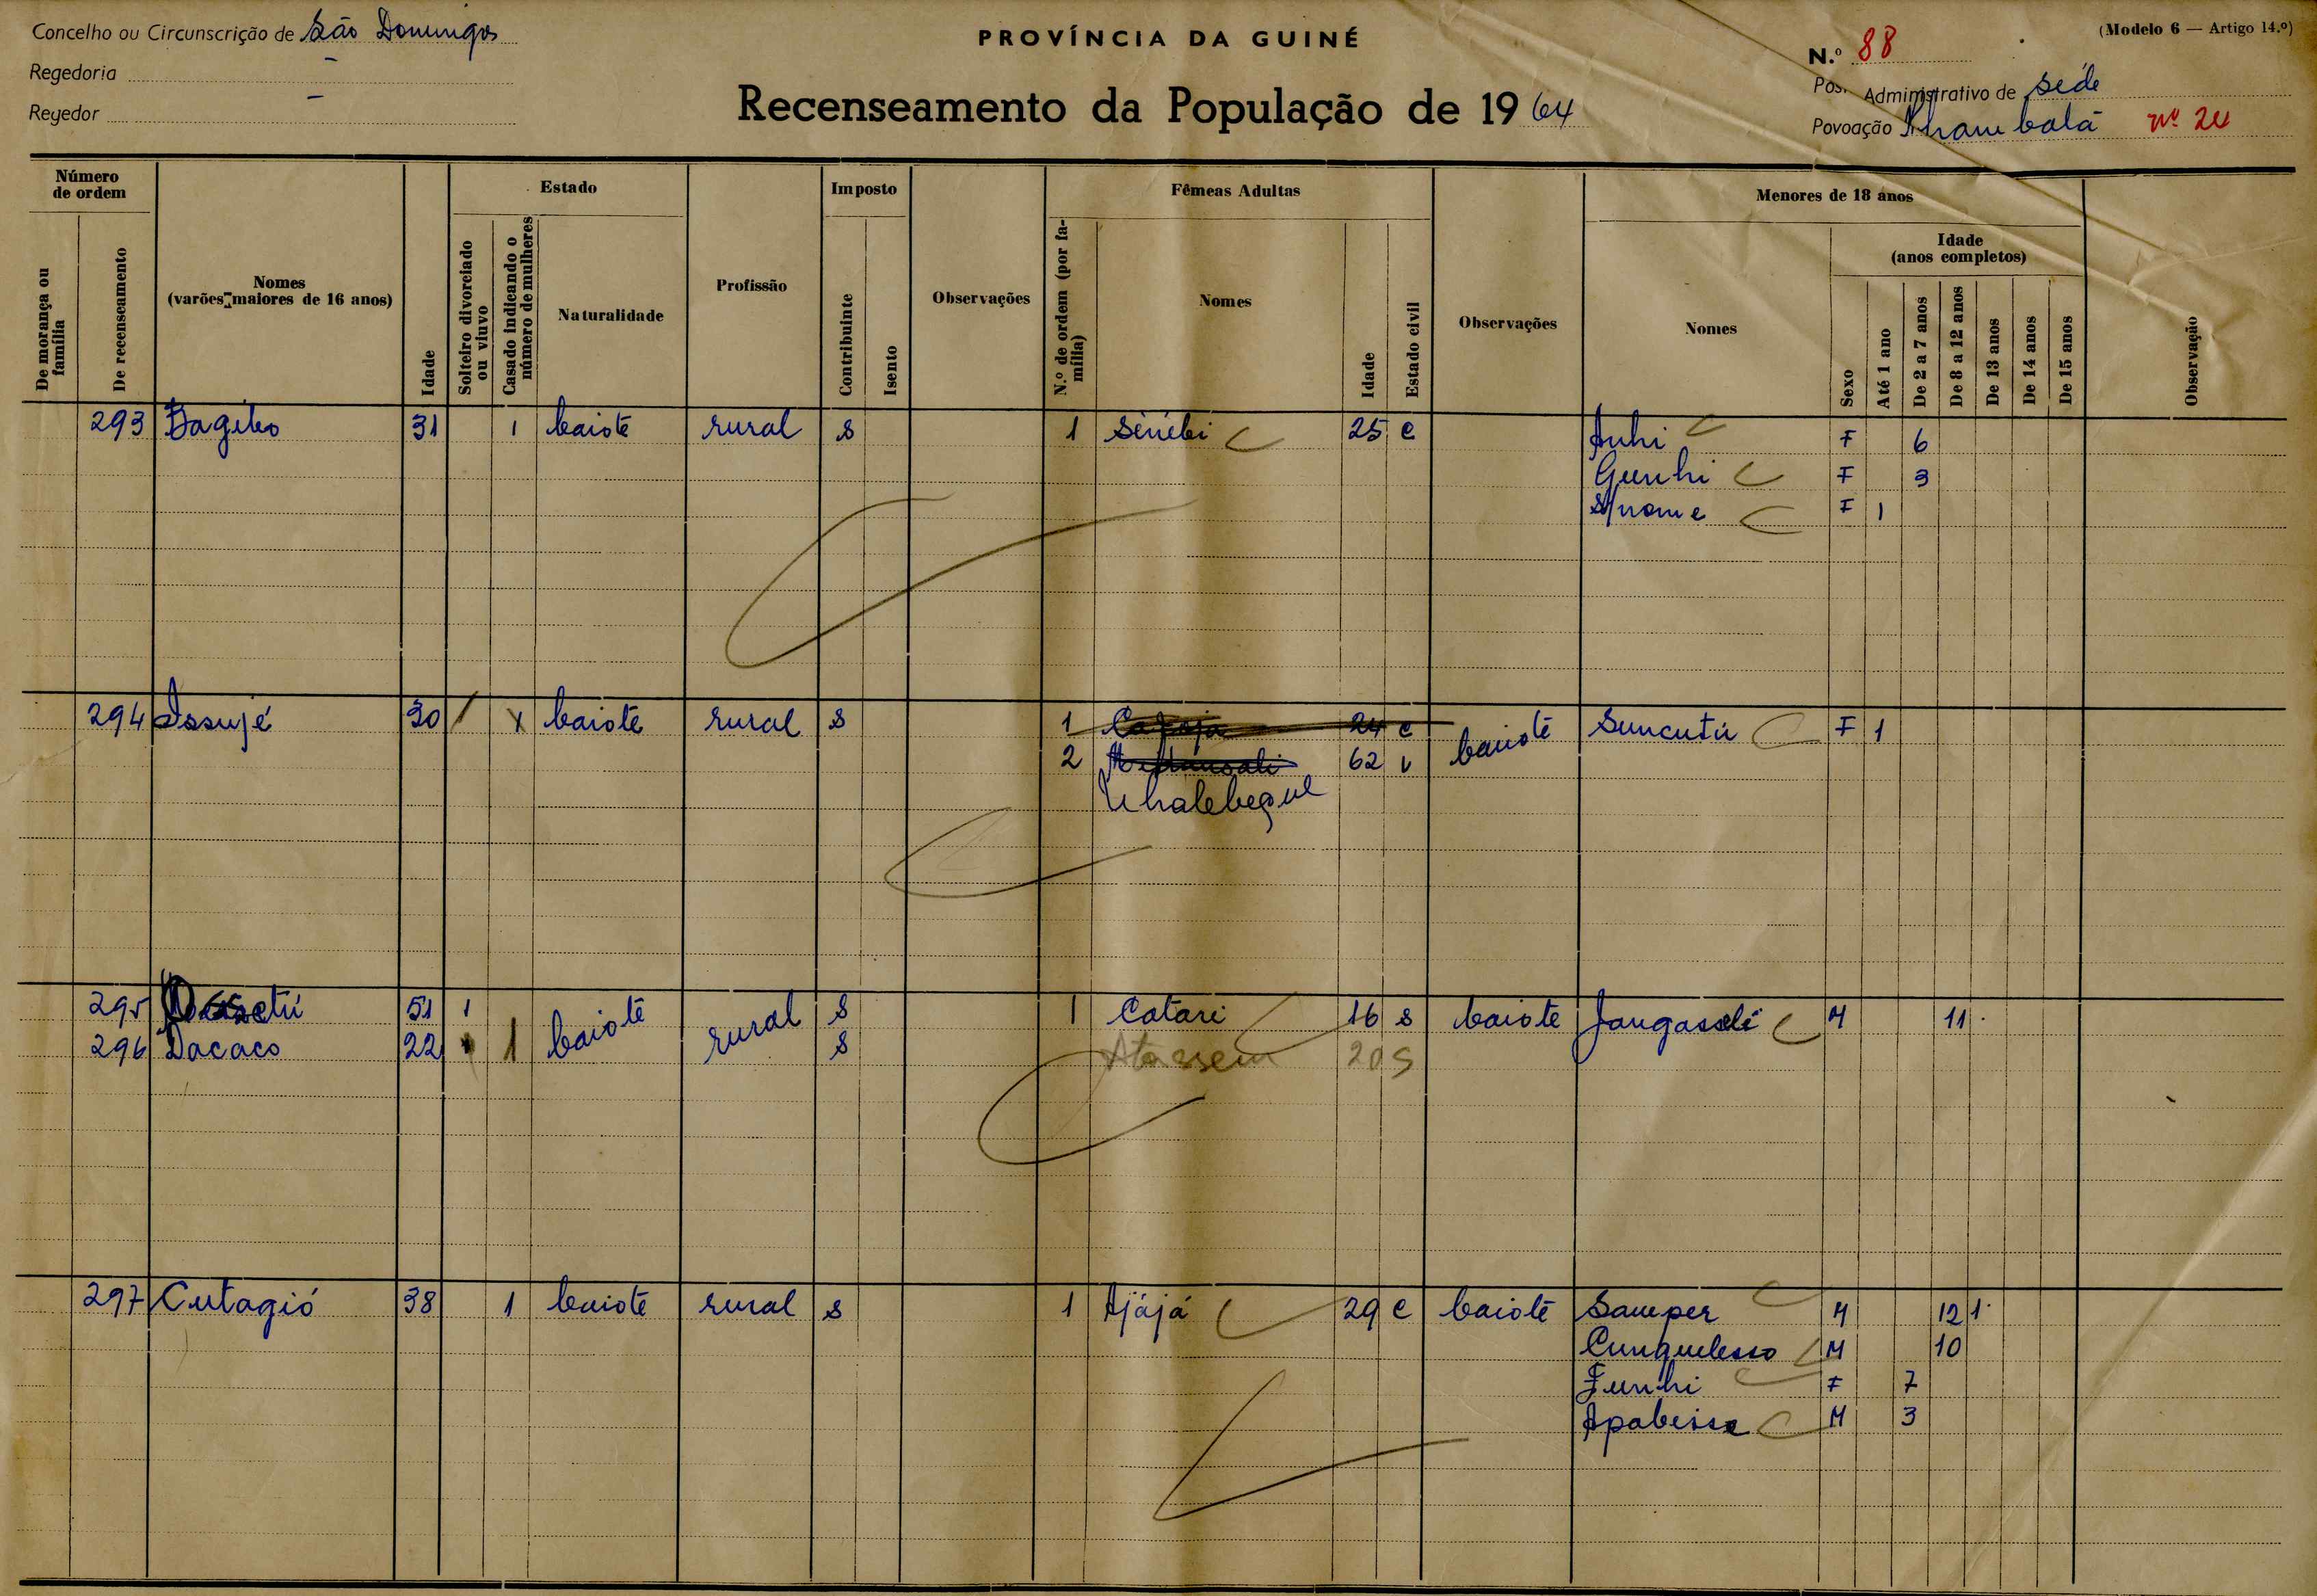 Concelho ou Circunscrição de São Domingos
PROVÍNCIA DA GUINÉ
N.º 88
(Modelo 6 — Artigo 14.º)
Regedoria –
Regedor –
Recenseamento da População de 1964
Administrativo de sede
Povoação nº 24
Número de ordem
De morança ou família
De recenseamento
Nomes
(varões maiores de 16 anos)
Idade
Estado
Solteiro divorciado ou viuvo
Casado indicando o número de mulheres
Naturalidade
Profissão
Imposto
Contribuinte
Isento
Observações
Fêmeas Adultas
N.º de ordem (por família)
Nomes
Idade
Estado civil
Observações
Menores de 18 anos
Nomes
Sexo
Idade
(anos completos)
Até 1 ano
De 2 a 7 anos
De 8 a 12 anos
De 13 anos
De 14 anos
De 15 anos
Observação
293 31 1 baiote rural s 1 25 c F 6
Gunhi F 3
F 1
294 Issujé 30 x baiote rural s 1 24 c baiote Suncutú F 1
2 62 v
295 51 1 baiote rural s 1 Catari 16 s baiote Jangasselé M 11
296 Dacaco 22 1 s Atassem 20 s
297 Cutagió 38 1 baiote rural s 1 Ajájá 29 c baiote Samper M 12 1
M 10
Junhi F 7
M 3